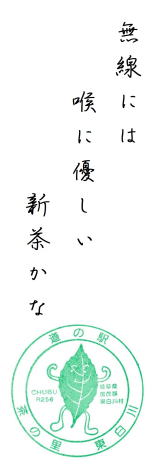 無線には
喉に優しい
新茶かな
道の駅
CHUBU
R256
岐阜県
加茂郡
東白川村
茶の里 東白川